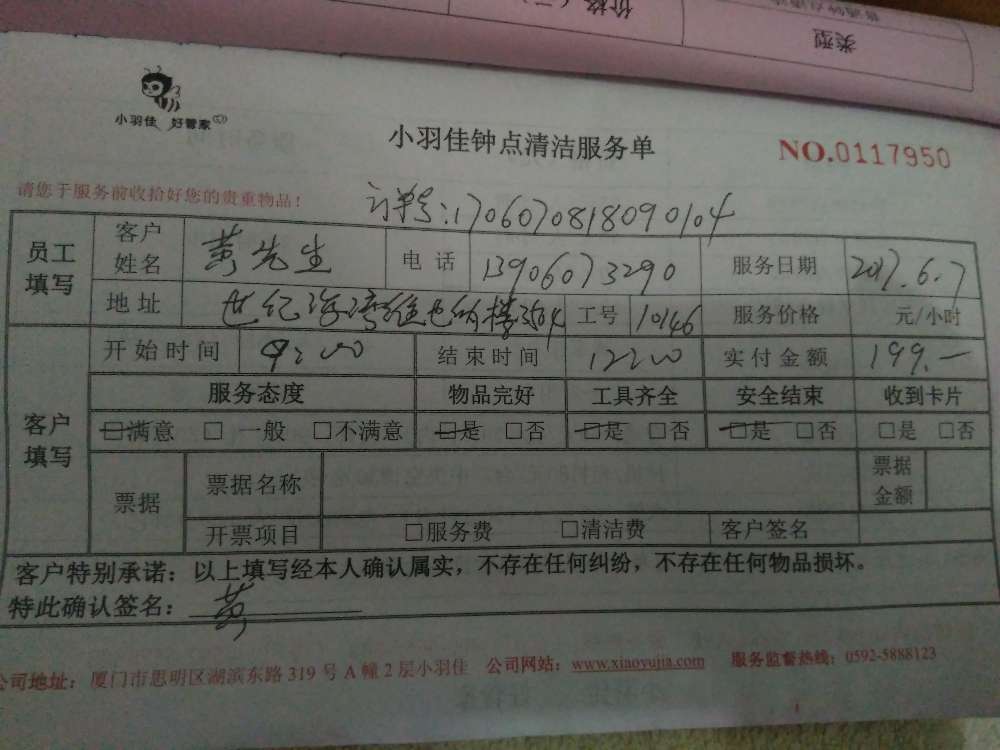 价格（元）
类型
小羽佳 好管家
小羽佳钟点清洁服务单
NO.0117950
请您于服务前收拾好您的贵重物品！
订单号：1706070818090104
员工填写 客户姓名 黄先生 电话 13906073290 服务日期 2017.6.7
地址 世纪海湾维也纳楼3504 工号 10146 服务价格 元/小时
客户填写 开始时间 9:00 结束时间 12:00 实付金额 199.—
服务态度 物品完好 工具齐全 安全结束 收到卡片
□满意 □一般 □不满意 □是 □否 □是 □否 □是 □否 □是 □否
票据 票据名称 票据金额
开票项目 □服务费 □清洁费 客户签名
客户特别承诺：以上填写经本人确认属实，不存在任何纠纷，不存在任何物品损坏。
特此确认签名：黄
公司地址：厦门市思明区湖滨东路319号A幢2层小羽佳 公司网站：www.xiaoyujia.com 服务监督热线：0592-5888123